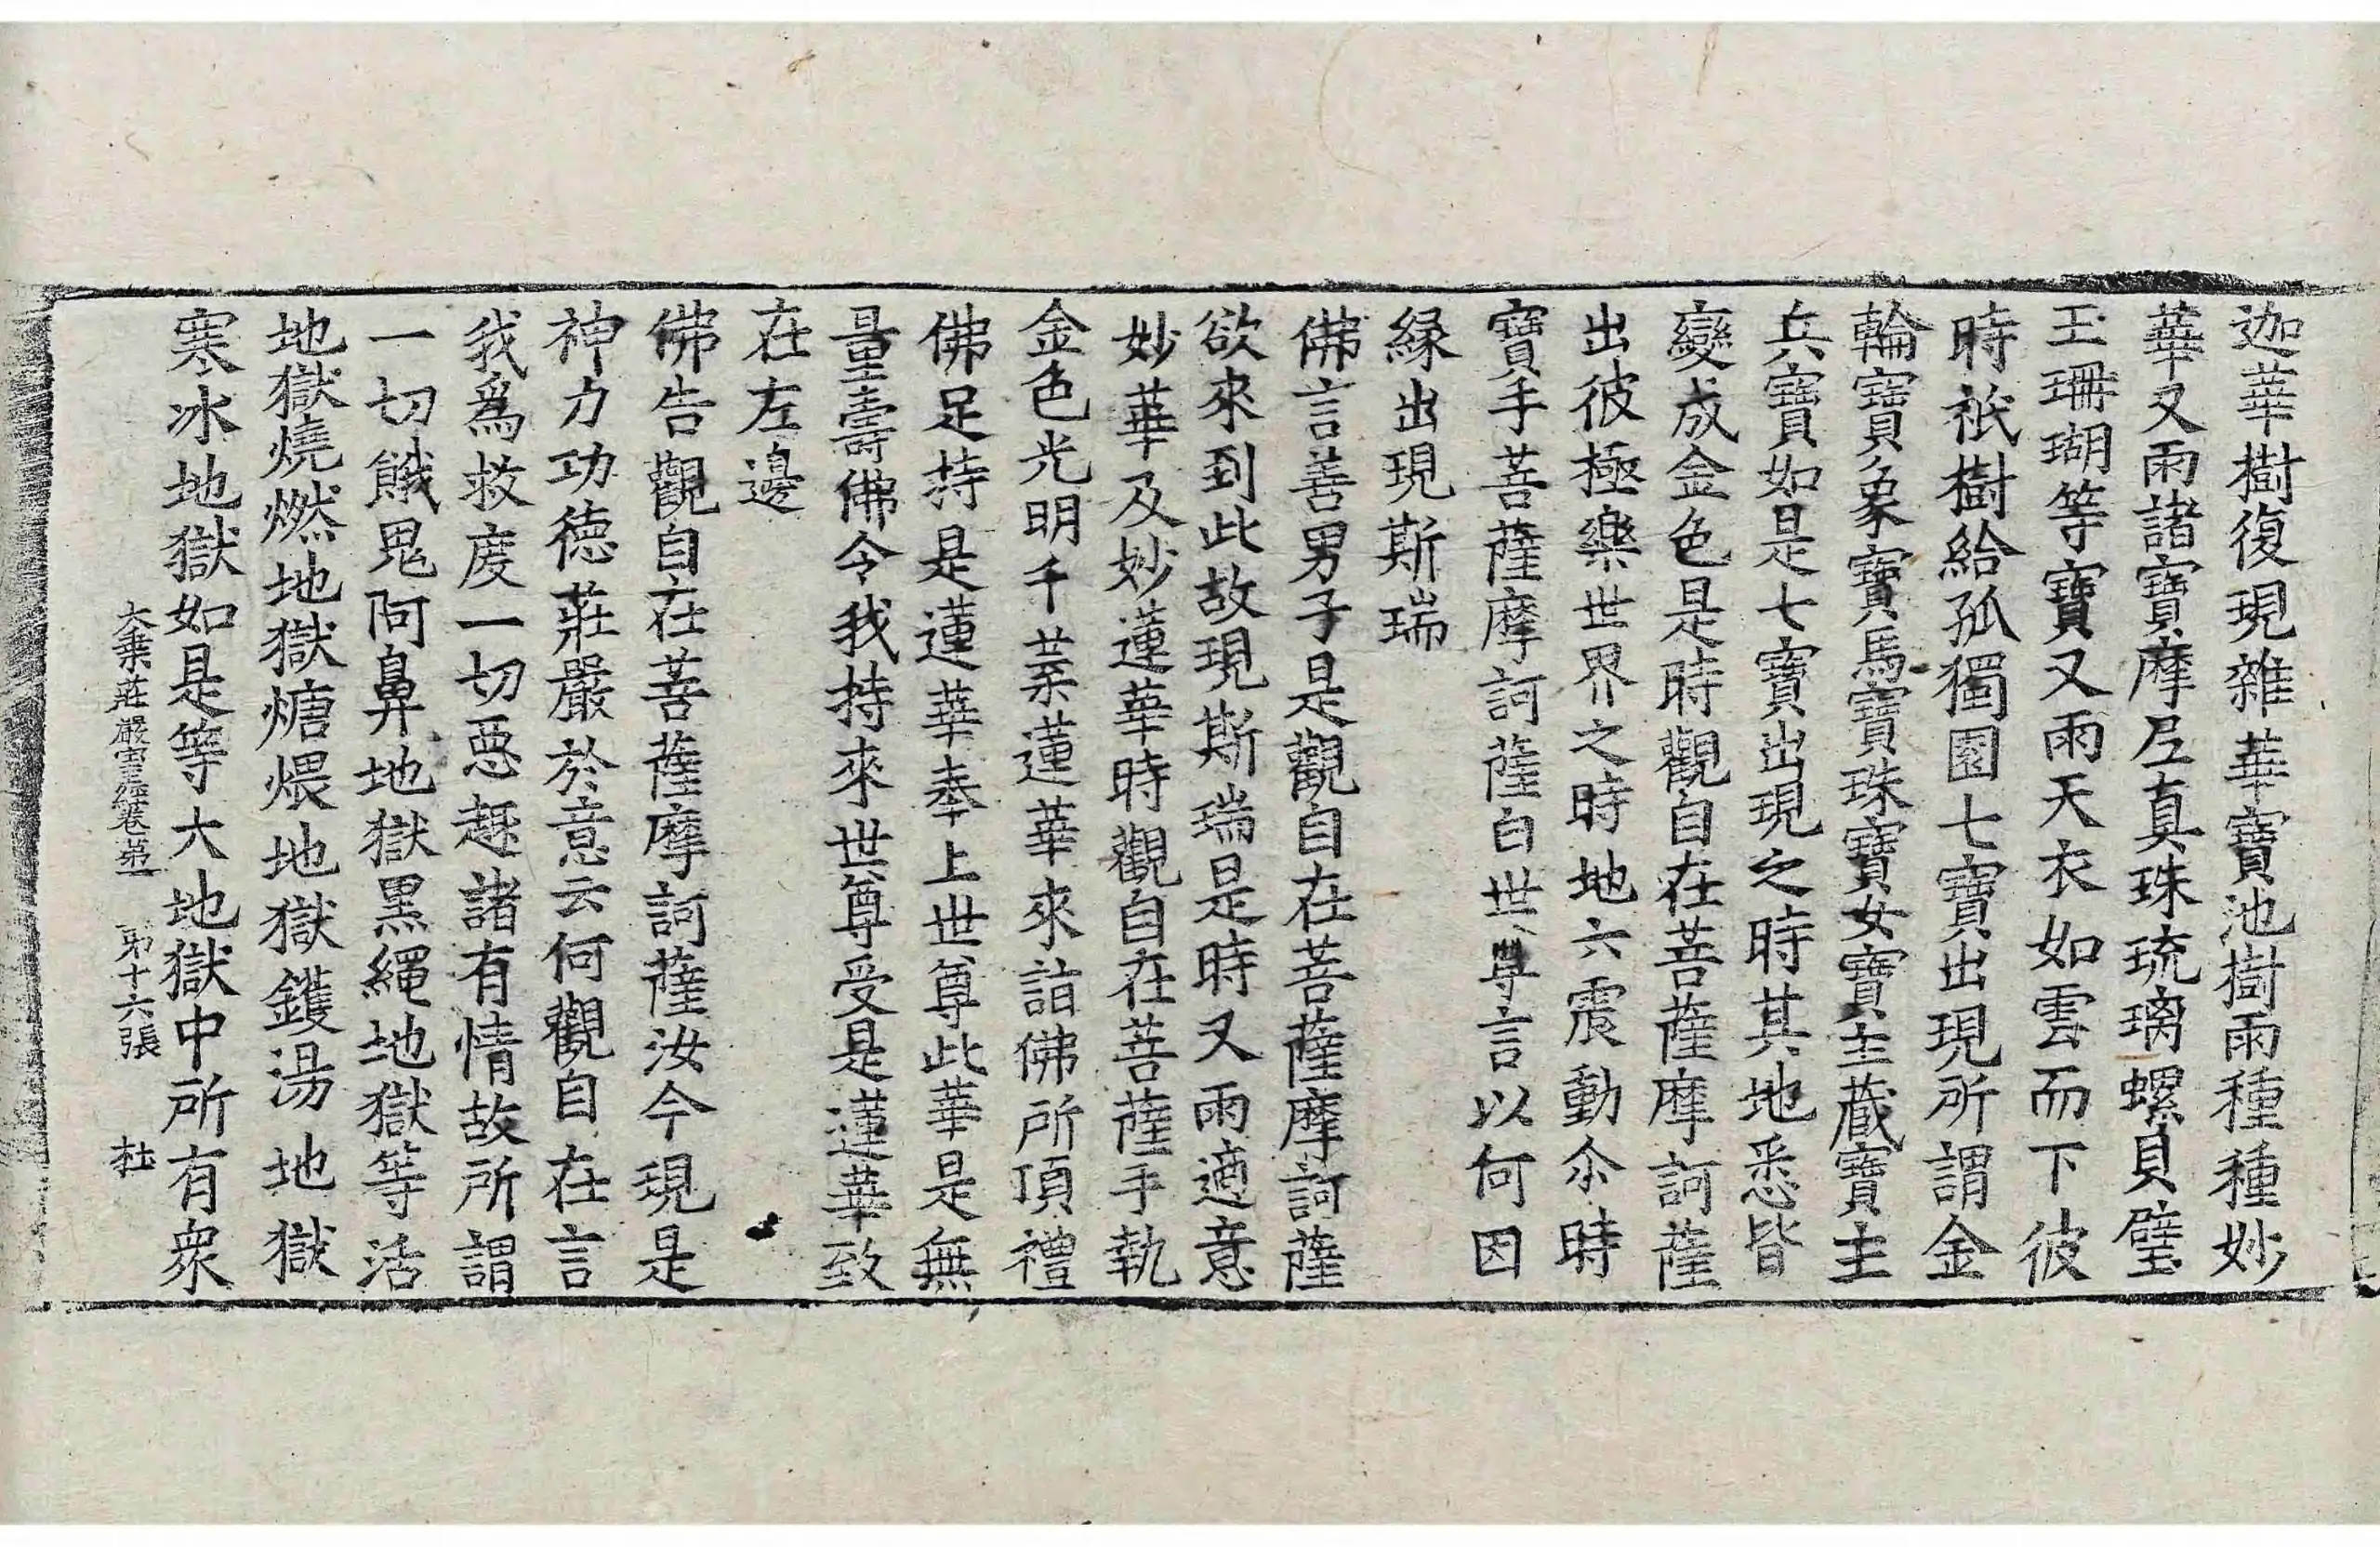 迦華樹復現雜華寶池樹雨種種妙
華又雨諸寶摩尼真珠琉璃螺貝璧
玉珊瑚等寶又雨天衣如雲而下彼
時祇樹給孤獨園七寶出現所謂金
輪寶象寶馬寶珠寶女寶主藏寶主
兵寶如是七寶出現之時其地悉皆
變成金色是時觀自在菩薩摩訶薩
出彼極樂世界之時地六震動尒時
寶手菩薩摩訶薩白世尊言以何因
緣出現斯瑞
佛言善男子是觀自在菩薩摩訶薩
欲來到此故現斯瑞是時又雨適意
妙華及妙蓮華時觀自在菩薩手執
金色光明千葉蓮華來詣佛所頂禮
佛足持是蓮華奉上世尊此華是無
量壽佛令我持來世尊受是蓮華致
在左邊
佛告觀自在菩薩摩訶薩汝今現是
神力功德莊嚴於意云何觀自在言
我為救度一切惡趣諸有情故所謂
一切餓鬼阿鼻地獄黑繩地獄等活
地獄燒燃地獄煻煨地獄鑊湯地獄
寒冰地獄如是等大地獄中所有衆
大乗莊嚴寶王經卷苐一　苐十六張　杜